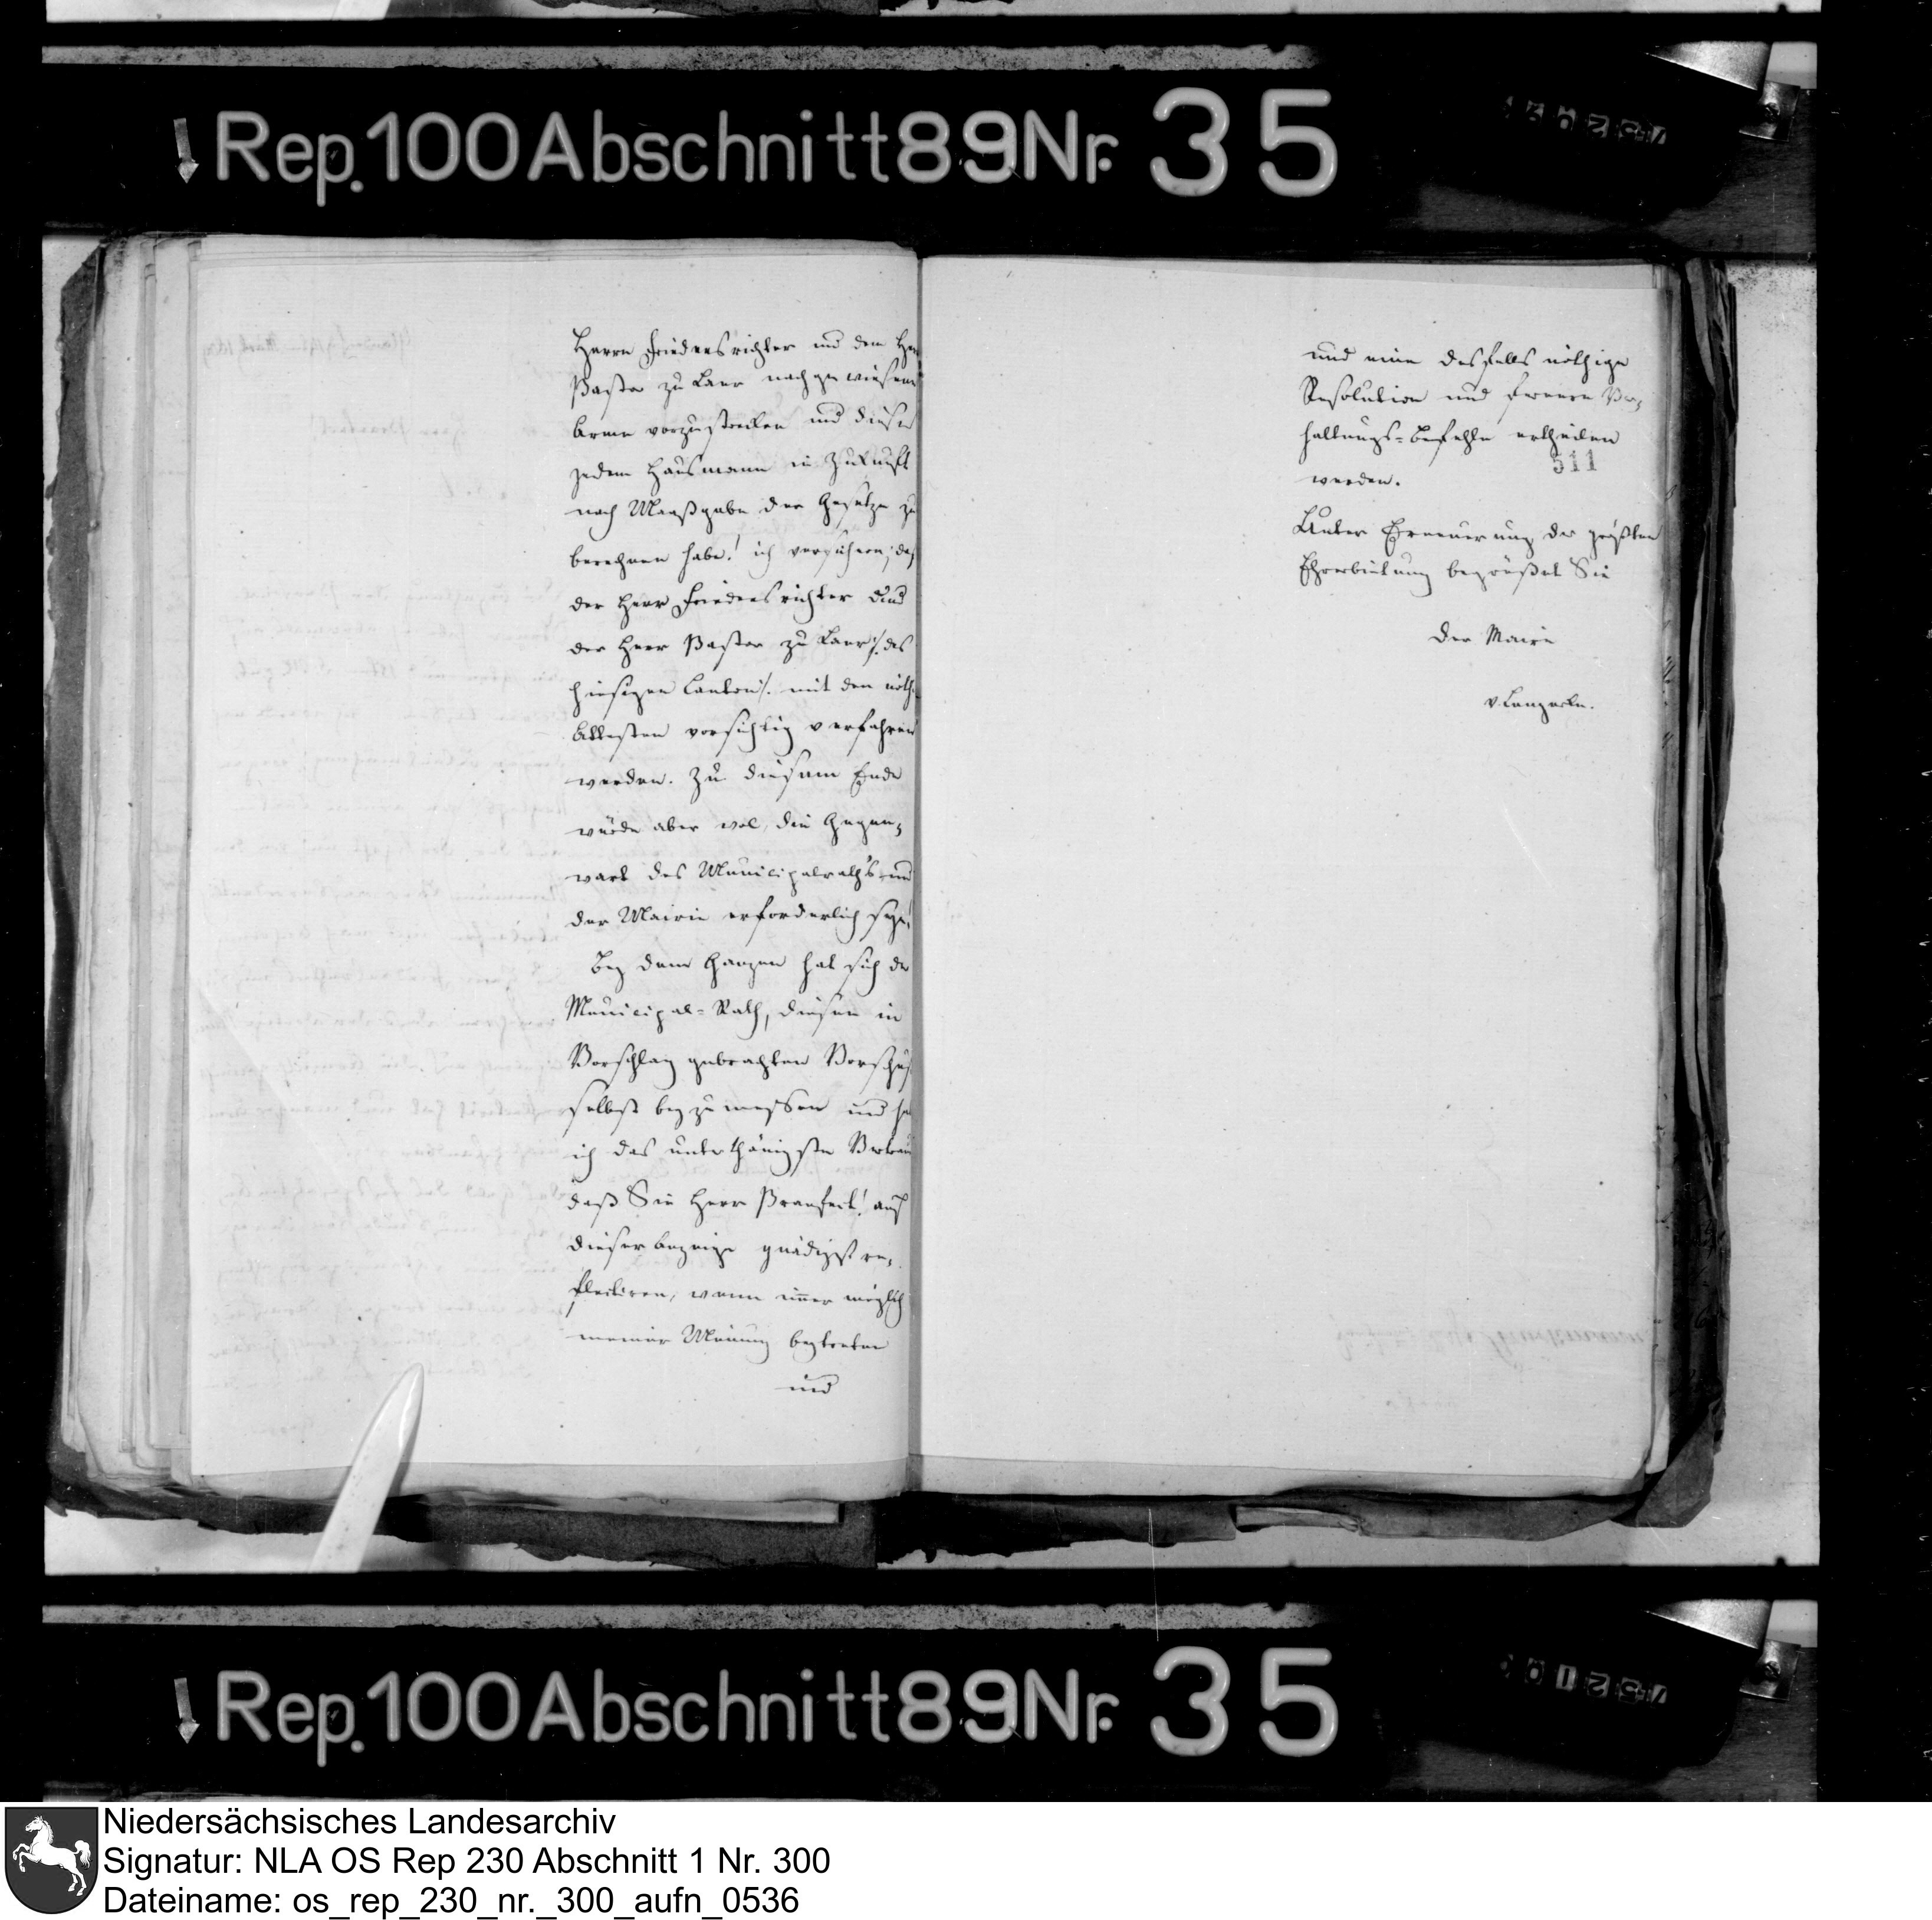 Rep. 100 Abschnitt 89 Nr. 35
Herrn Friedensrichter und dem Her
Pastor zu Laer nachgewiesene
Arme vorzustrecken und dieses
jedem Hausmann in Zukunft
nach Maaßgabe der Gesetze zu
berechnen habe! ich versichere, daß
der Herr Friedensrichter und
der Herr Pastor zu Laer /: des
hiesigen Cantons :/ mit den nöth
Attesten vorsichtig verfahren
werden. Zu diesem Ende
würde aber wol, die Gegen=
wart des Municipalrath's und
der Mairie erforderlich seyn!
Bey dem Ganzen hat sich der
Municipal=Rath, diesen in
Vorschlag gebrachten Vorschuß
selbst beyzumessen und ha
ich das unterthänigste Vertrau
daß Sie Herr Praefect! auf
diese gnädigst re=
flectiren, wenn immer möglich
meiner Meinung beytreten
und
und eine desfalls nöthige
Resolution und fernere Ver=
haltungs=Befehle ertheilen
511
werden.
Unter Erneuerung der größten
Ehrerbietung begrüßet Sie
Der Maire
v. Langeln.
Rep. 100 Abschnitt 89 Nr. 35
Niedersächsisches Landesarchiv
Signatur: NLA OS Rep 230 Abschnitt 1 Nr. 300
Dateiname: os_rep_230_nr._300_aufn_0536